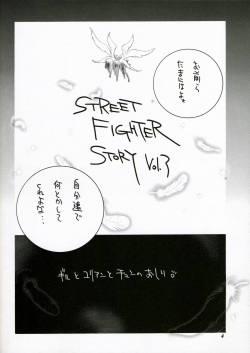 お前ら
たまにはよ。
STREET
FIGHTER
STORY Vol.3
自分達で
何とかして
くれよな…
ギルとユリアンとチュンのおしりゞ
4